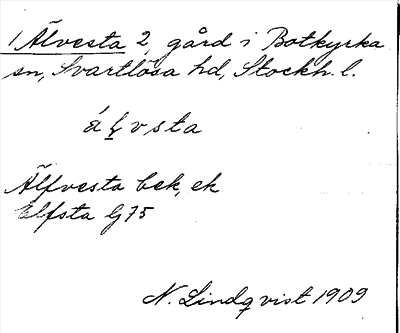 1 Älvesta 2, gård i Botkyrka
sn, Svartlösa hd, Stockh. l.
álvsta
Älfvesta bek, ek
Elfsta G75
N. Lindqvist 1909